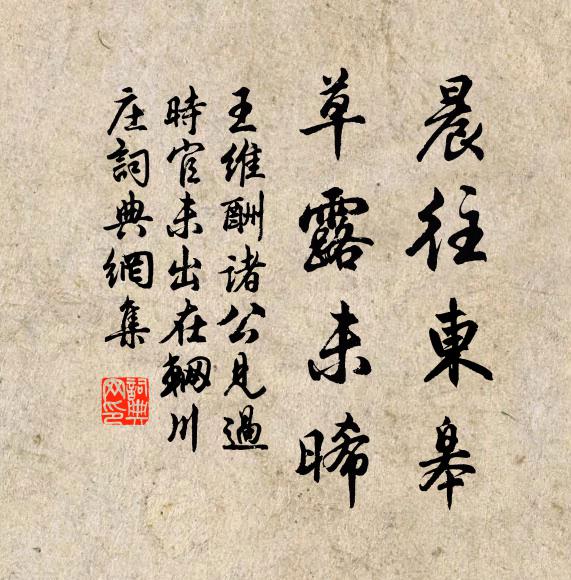 晨往東皋
草露未晞
王維酬諸公見過
時官未出在輞川
庄詞典網集
詞典网印